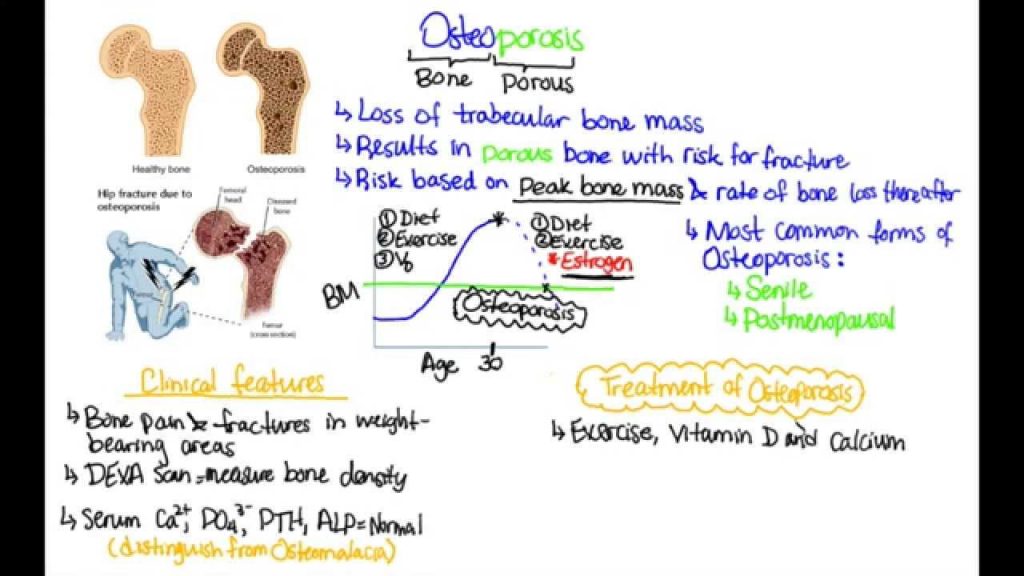 Osteoporosis
Bone Porous
↳ Loss of trabecular bone mass
↳ Results in porous bone with risk for fracture
↳ Risk based on peak bone mass & rate of bone loss thereafter
Healthy bone
Osteoporosis
Hip fracture due to
osteoporosis
Femoral
head
Diseased
bone
Femur
(cross section)
① Diet
② Exercise
③
① Diet
② Exercise
* Estrogen
BM
Osteoporosis
Age 30
↳ Most common forms of
Osteoporosis:
↳ Senile
↳ Postmenopausal
Clinical features
↳ Bone pain & fractures in weight-
bearing areas
↳ DEXA scan = measure bone density
↳ Serum Ca²⁺, PO₄³⁻, PTH, ALP = Normal
(distinguish from Osteomalacia)
Treatment of Osteoporosis
↳ Exercise, Vitamin D and Calcium